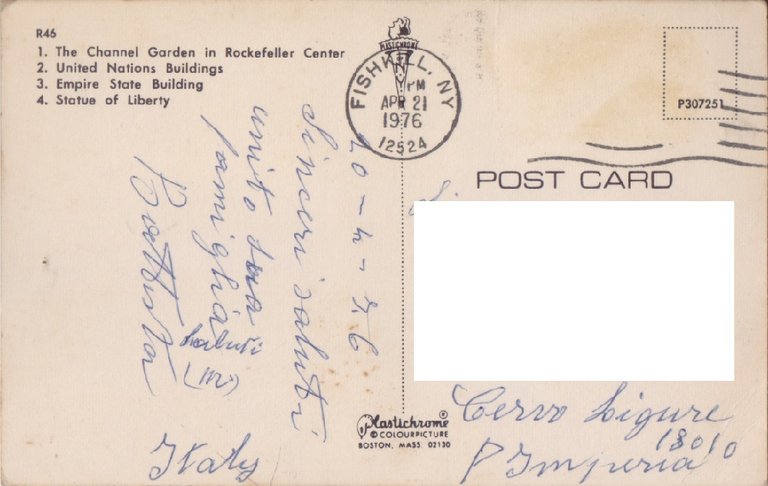 R46
1. The Channel Garden in Rockefeller Center
2. United Nations Buildings
3. Empire State Building
4. Statue of Liberty
PLASTICHROME
FISHKILL, NY
PM
APR 21
1976
12524
P307251
POST CARD
20-4-76
Sinceri saluti
unito sua
famiglia
saluti
Italy
Plastichrome®
© COLOURPICTURE
BOSTON, MASS. 02130
Cervo Ligure
18010
P Imperia